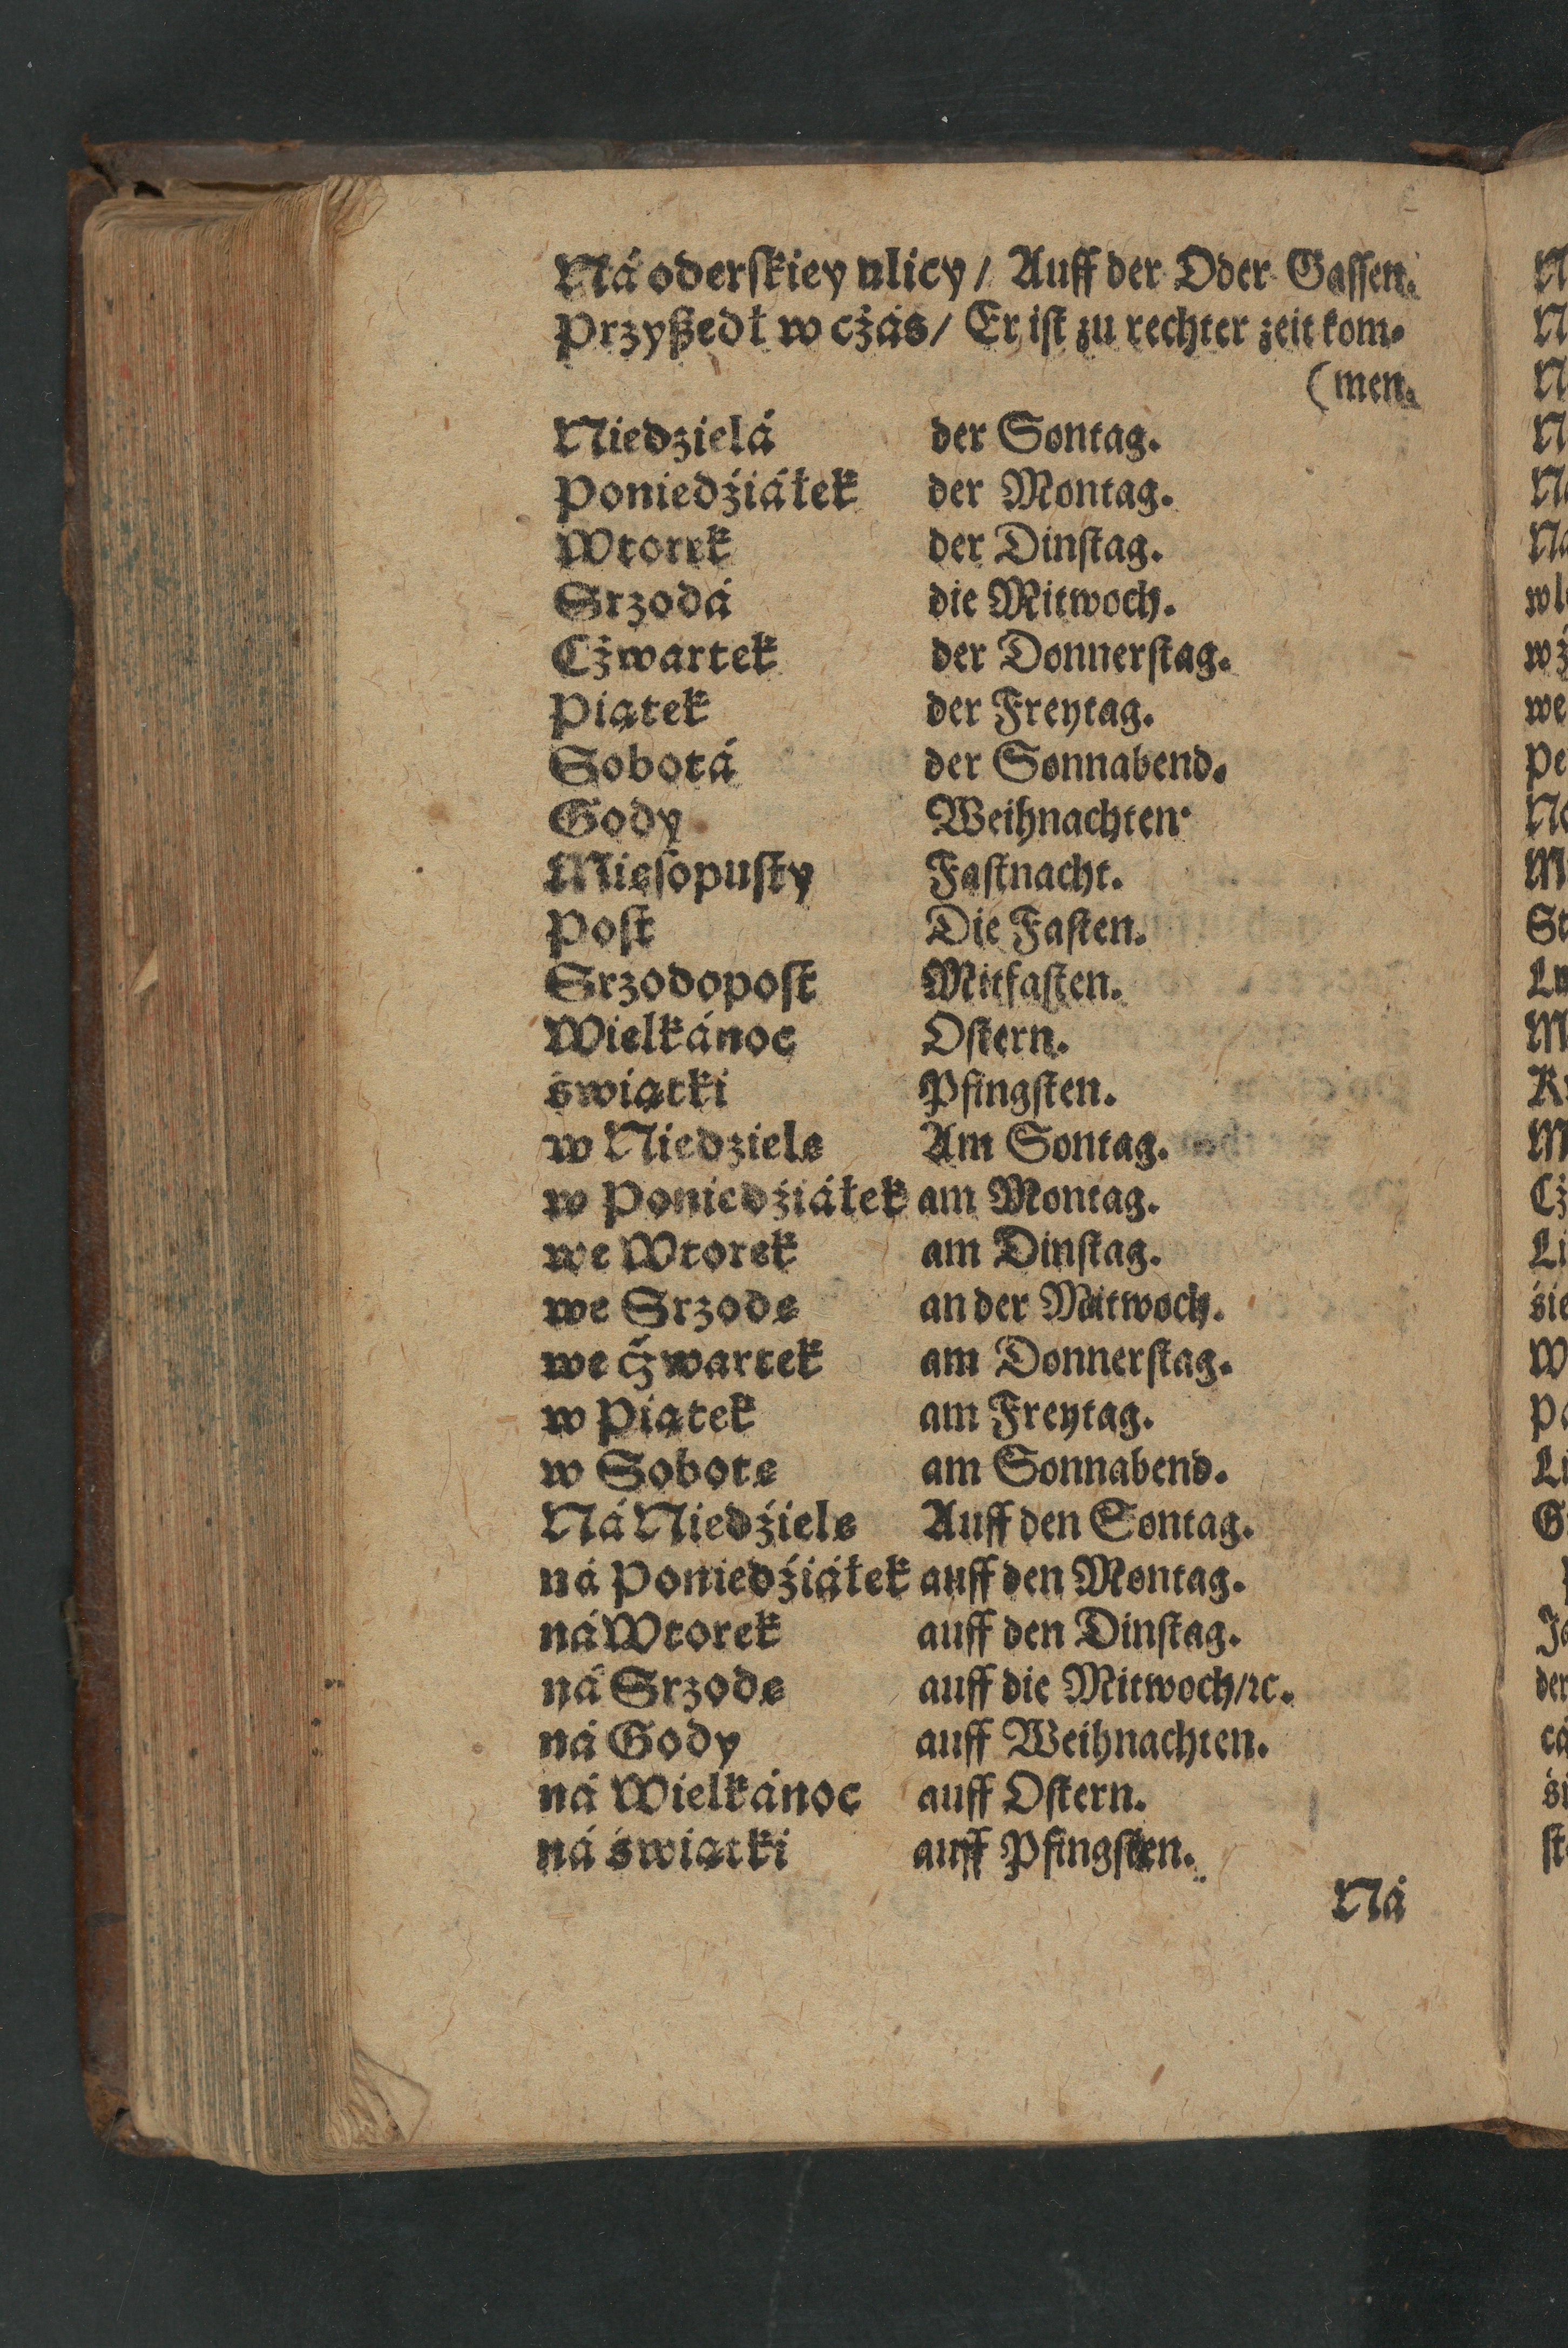 Ná oderſkiey ulicy / Auff der Oder Gaſſen.
Przyßedł w cżás / Er iſt zu rechter zeit kom-
(men.
Niedzielá der Sontag.
Poniedźiáłek der Montag.
Wtorek der Dinſtag.
Srzodá die Mitwoch.
Cżwartek der Donnerſtag.
Piątek der Freytag.
Sobotá der Sonnabend.
Gody Weihnachten.
Mięſopuſty Faſtnacht.
Poſt Die Faſten.
Srzodopoſt Mitfaſten.
Wielkánoc Oſtern.
świątki Pfingſten.
w Niedzielę Am Sontag.
w Poniedźiáłek am Montag.
we Wtorek am Dinſtag.
we Srzodę an der Mitwoch.
we cżwartek am Donnerſtag.
w Piątek am Freytag.
w Sobotę am Sonnabend.
Ná Niedźielę Auff den Sontag.
ná Poniedźiáłek auff den Montag.
ná Wtorek auff den Dinſtag.
ná Srzodę auff die Mitwoch/ꝛc.
ná Gody auff Weihnachten.
ná Wielkánoc auff Oſtern.
ná świątki auff Pfingſten.
Ná